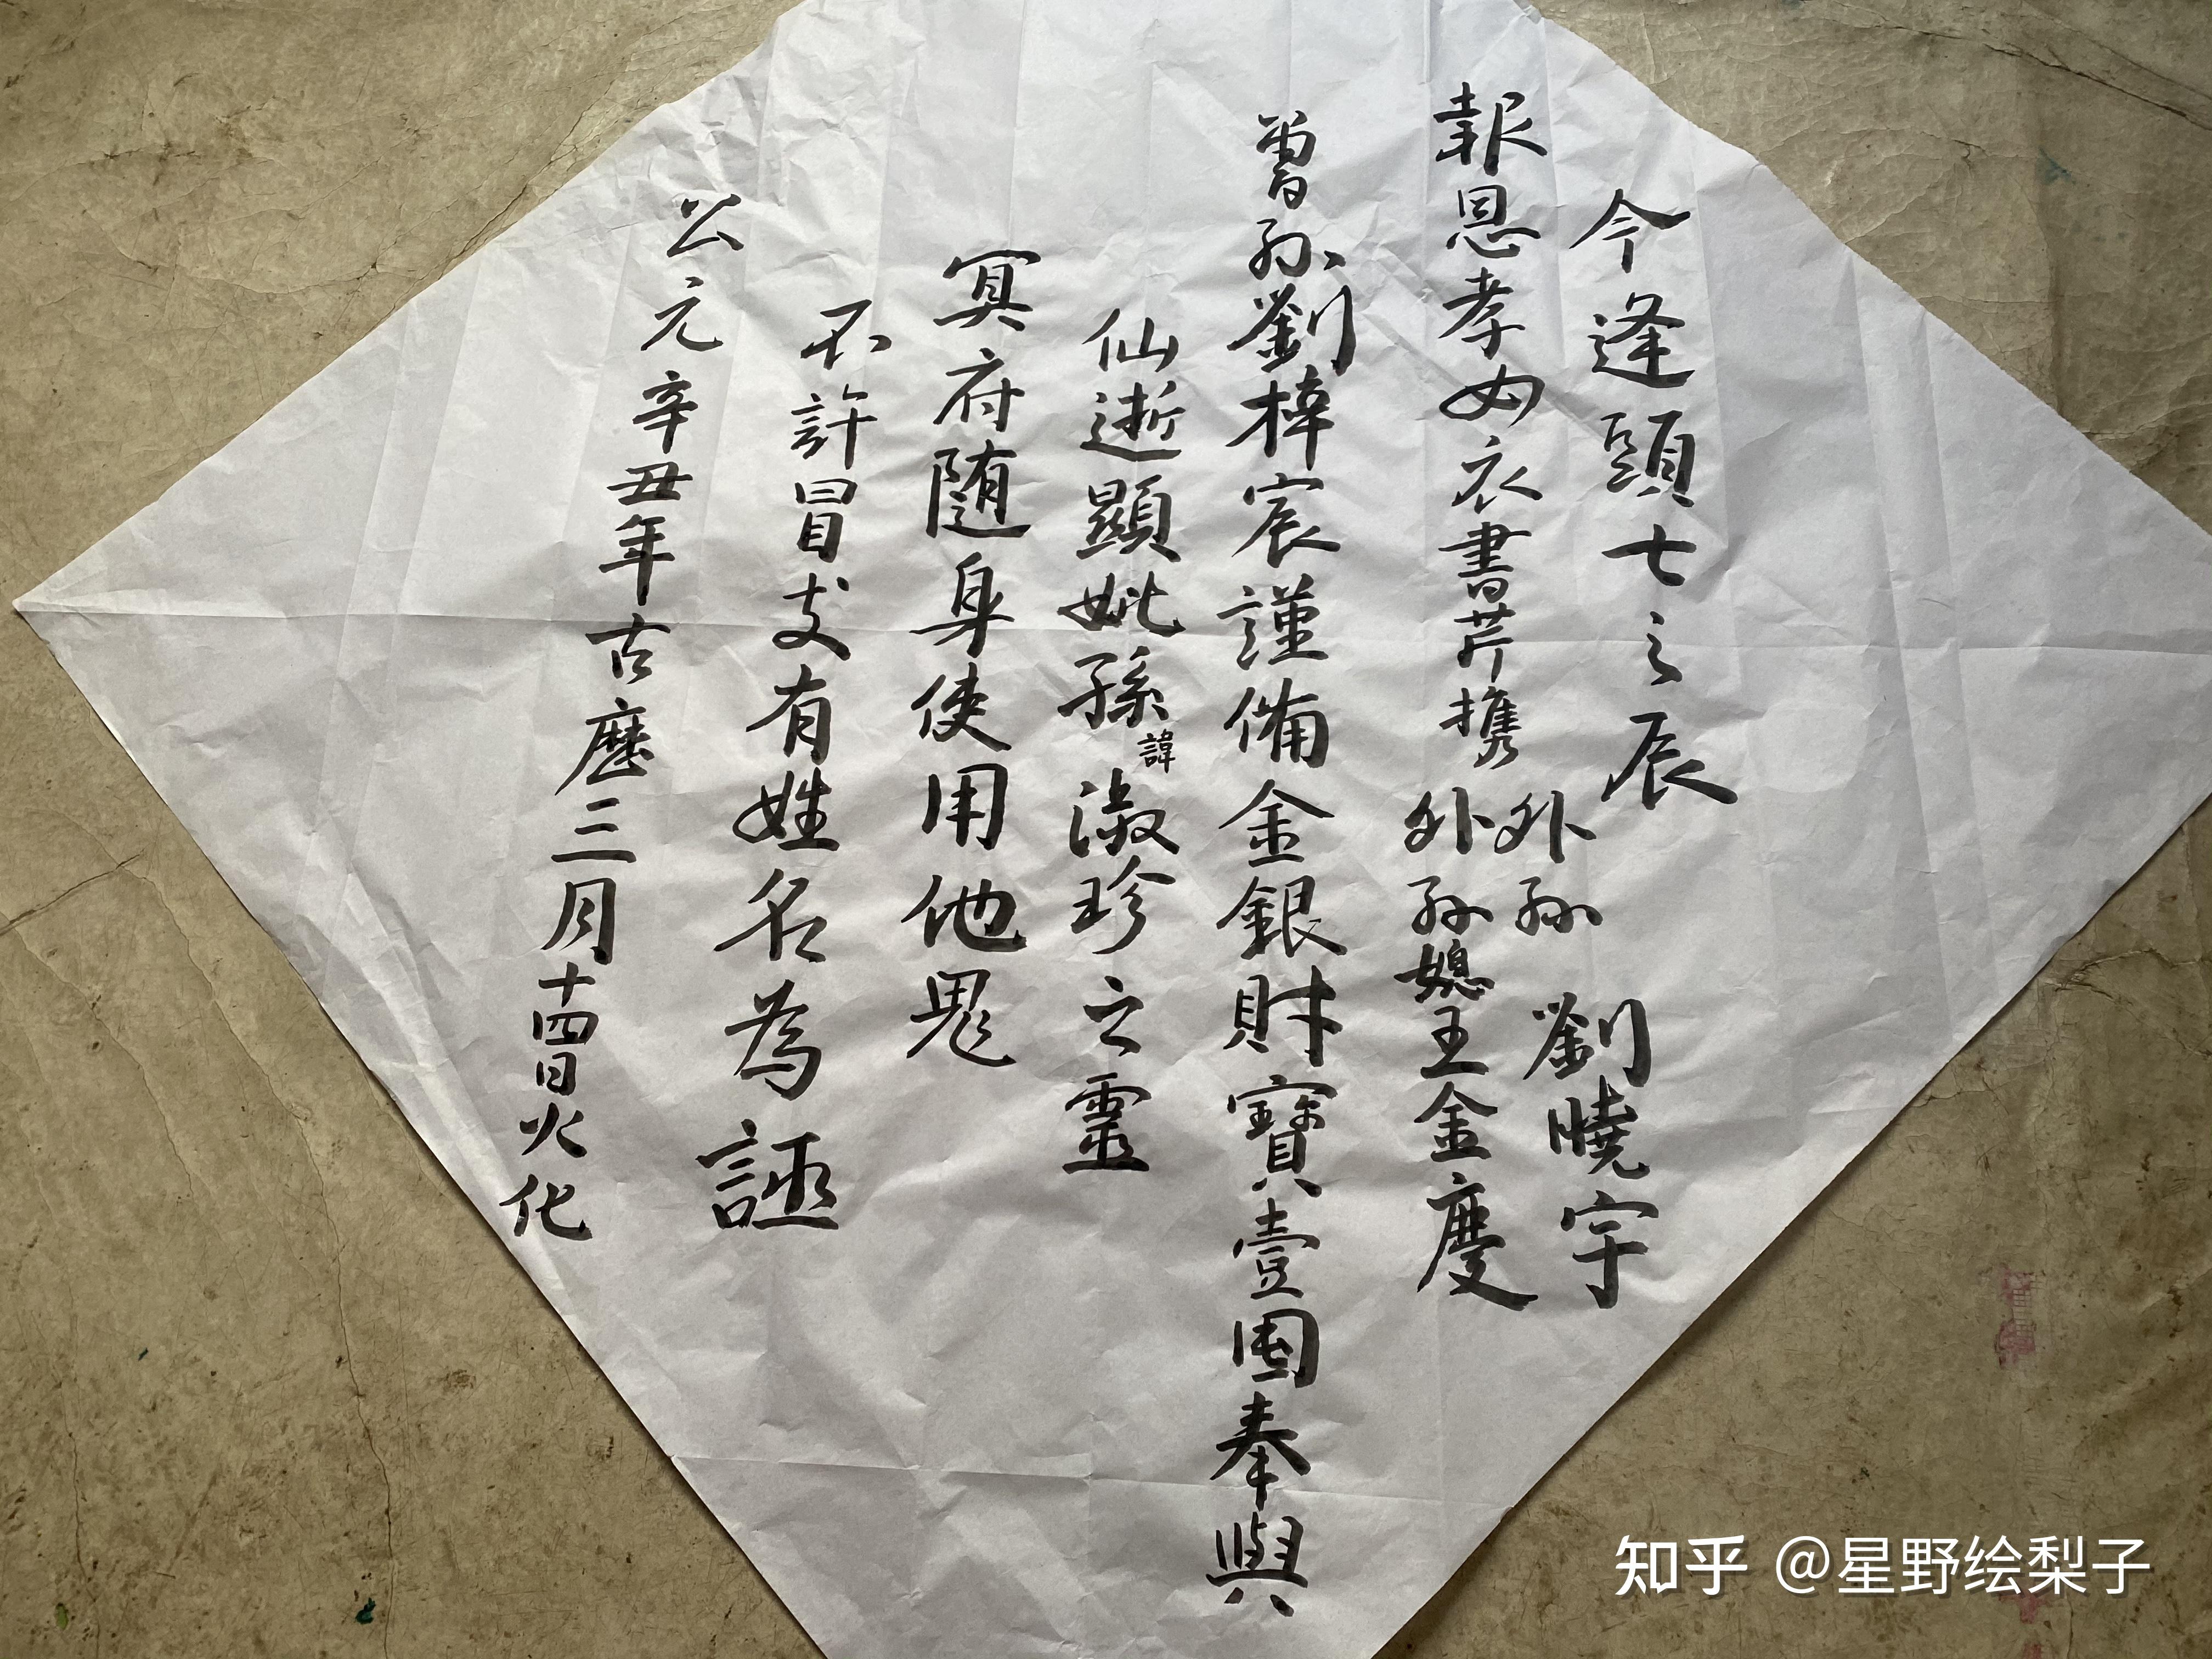 今逢頭七之辰
報恩孝女衣書芹携
外孫 劉曉宇
外孫媳王金慶
曾孫劉梓宸謹備金銀財寶壹囤奉與
仙逝顯妣孫諱淑珍之靈
冥府随身使用他鬼
不許冒支有姓名為誣
公元辛丑年古歷三月十四日火化
知乎 @星野绘梨子